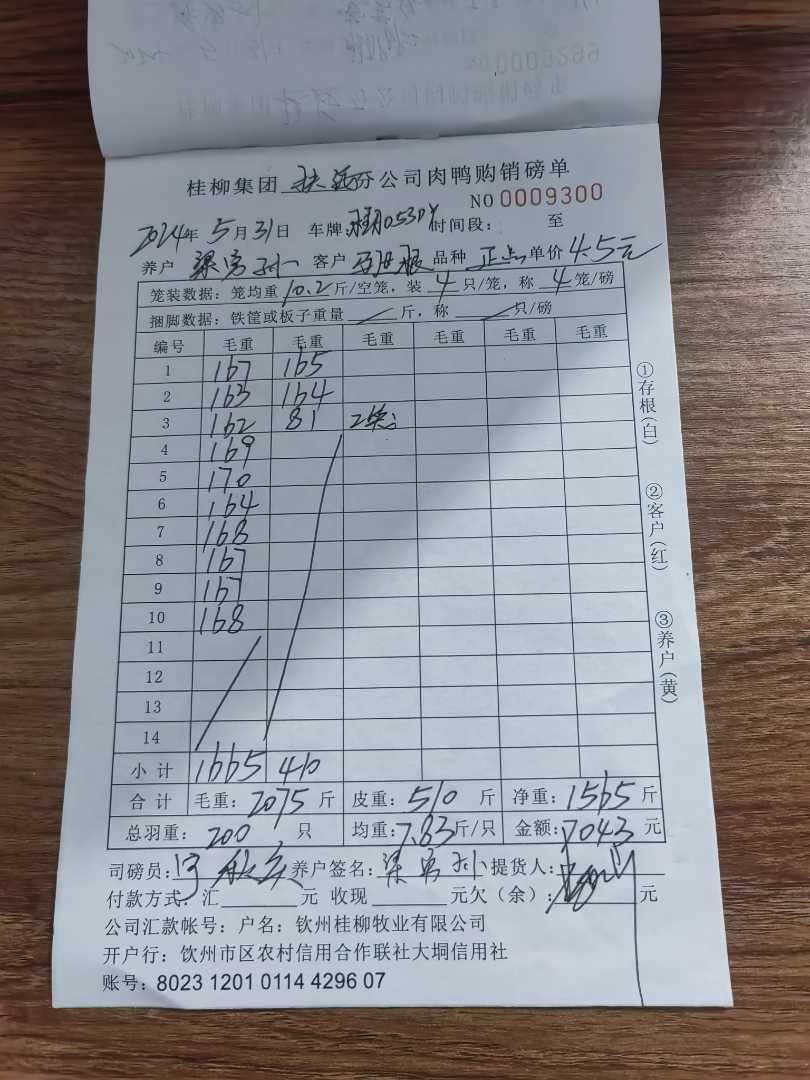 桂柳集团 分公司肉鸭购销磅单
NO 0009300
2024年 5月 31日 车牌 时间段: 至
养户 客户 品种 正点 单价 4.5元
笼装数据：笼均重 10.2 斤/空笼，装 4 只/笼，称 4 笼/磅
捆脚数据：铁筐或板子重量 斤，称 只/磅
编号 毛重 毛重 毛重 毛重 毛重 毛重
1 167 165
2 163 164
3 162 81
4 169
5 170
6 164
7 168
8 167
9 167
10 168
11
12
13
14
小计 1665 410
合计 毛重：2075 斤 皮重：510 斤 净重：1565 斤
总羽重：200 只 均重：7.83斤/只 金额：7043 元
司磅员： 养户签名： 提货人：
付款方式：汇 元 收现 元欠（余）： 元
公司汇款帐号：户名：钦州桂柳牧业有限公司
开户行：钦州市区农村信用合作联社大垌信用社
账号：8023 1201 0114 4296 07
①存根（白）
②客户（红）
③养户（黄）